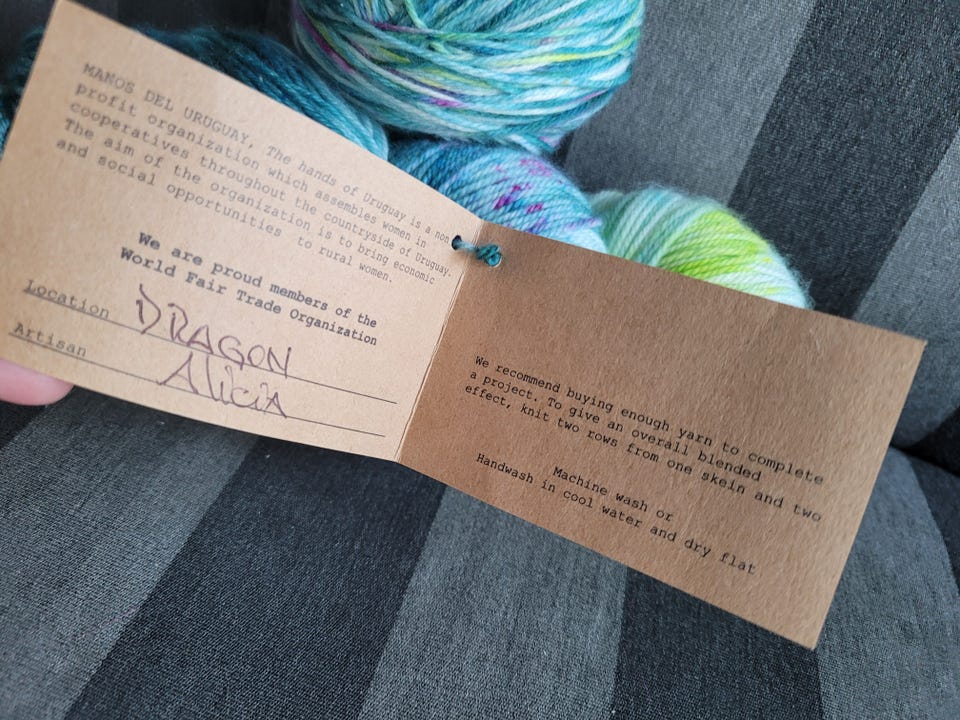 MANOS DEL URUGUAY, The hands of Uruguay is a non
profit organization which assembles women in
cooperatives throughout the countryside of Uruguay.
The aim of the organization is to bring economic
and social opportunities to rural women.
We are proud members of the
World Fair Trade Organization
Location DRAGON
Artisan Alicia
We recommend buying enough yarn to complete
a project. To give an overall blended
effect, knit two rows from one skein and two
Machine wash or
Handwash in cool water and dry flat